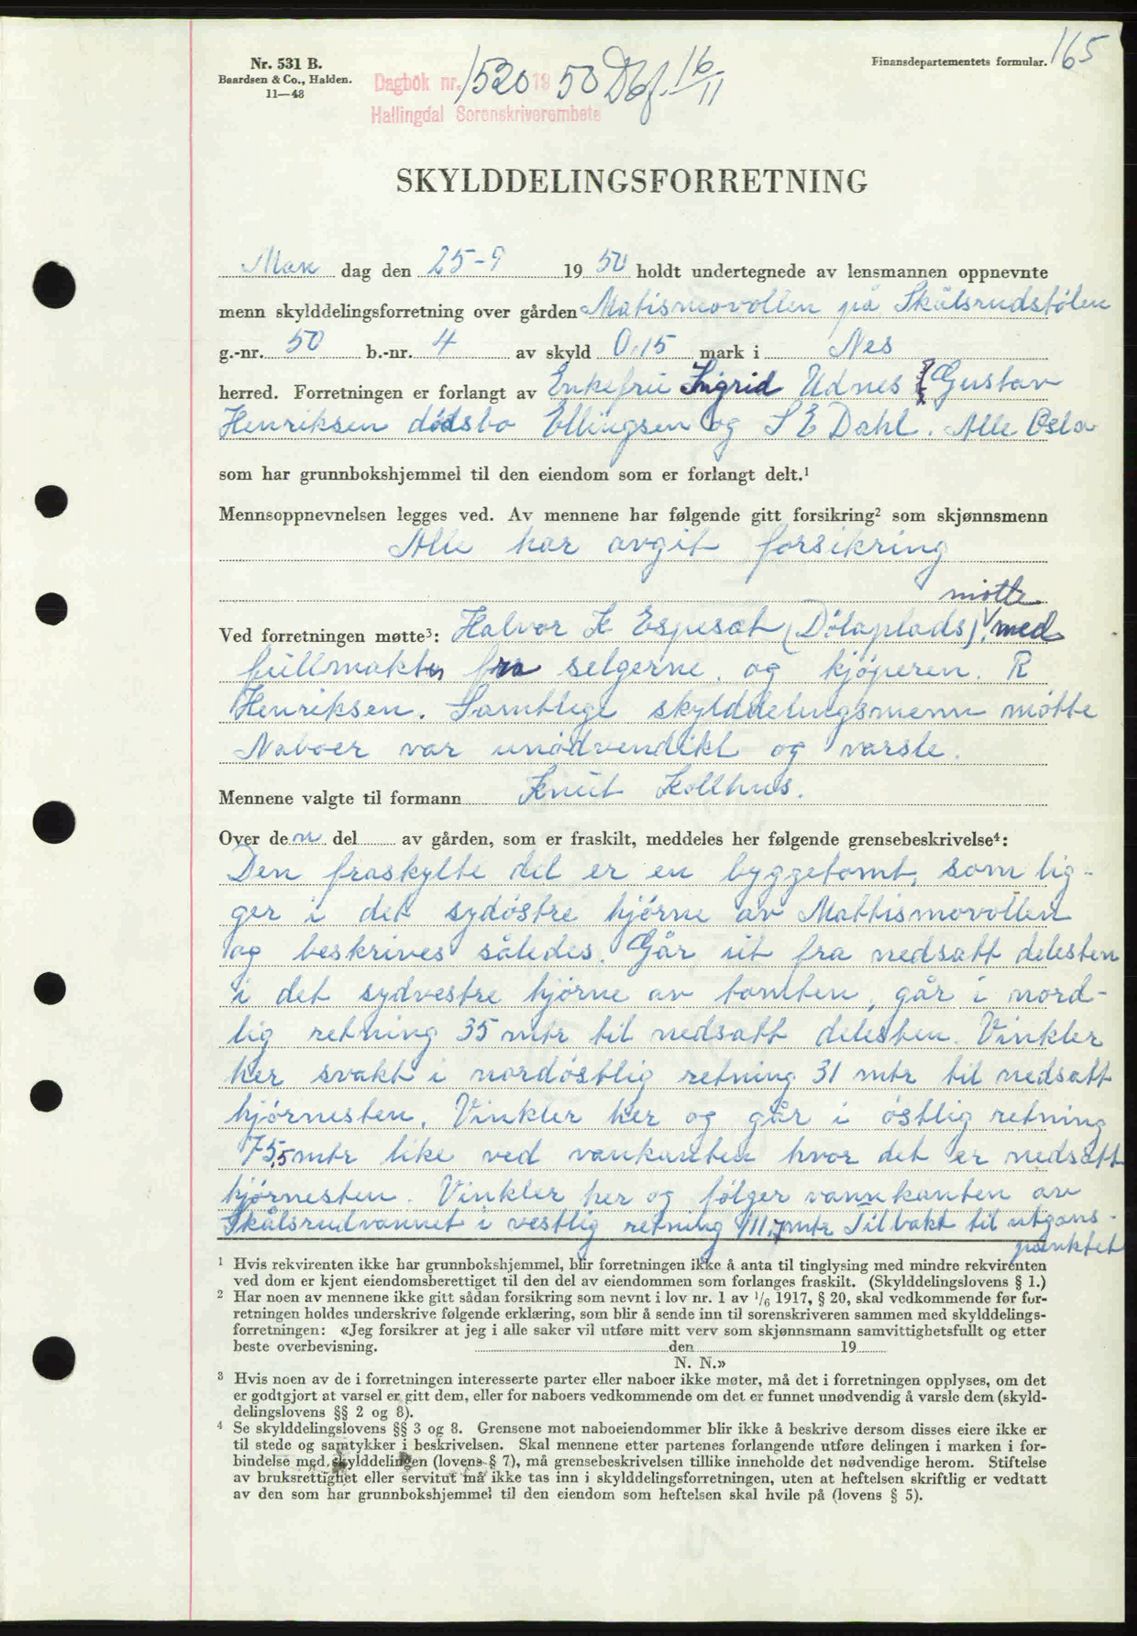 165
Nr. 531 B.
Baardsen & Co., Halden.
11—48
Finansdepartementets formular.
Dagbok nr. 1520 1950 Dbf. 16/11
Hallingdal Sorenskriverembete
SKYLDDELINGSFORRETNING
Man dag den 25-9 1950 holdt undertegnede av lensmannen oppnevnte
menn skylddelingsforretning over gården Matismovollen på Skålsrudstölen
g.-nr. 50 b.-nr. 4 av skyld 0,15 mark i Nes
herred. Forretningen er forlangt av Enkefru Ingrid Udnes Gustav
Henriksen dødsbo Ellingsen og S E Dahl. Alle Oslo
som har grunnbokshjemmel til den eiendom som er forlangt delt.¹
Mennsoppnevnelsen legges ved. Av mennene har følgende gitt forsikring² som skjønnsmenn
Alle har avgit forsikring
møtte
Ved forretningen møtte³: Halvor K Espeset (Dölaplads) med
fullmakter fra selgerne. og kjöperen. R
Henriksen. Samtlige skylddelingsmenn mötte
Naboer var unödvendikt og varsle.
Mennene valgte til formann Knut Kollhus.
Over den del av gården, som er fraskilt, meddeles her følgende grensebeskrivelse⁴:
Den fraskylte del er en byggetomt, som lig-
ger i det sydöstre hjörne av Mattismovollen
og beskrives således. Går ut fra nedsatt delesten
i det sydvestre hjörne av tomten, går i nord-
lig retning 35 mtr til nedsatt delesten. Vinkler
her svakt i nordöstlig retning 31 mtr til nedsatt
hjörnesten. Vinkler her og går i östlig retning
75,5 mtr like ved vankanten hvor det er nedsatt
hjörnesten. Vinkler her og fölger vannkanten av
Skålsrudvannet i vestlig retning 111,7 mtr Tilbakt til utgans-
punktet
¹ Hvis rekvirenten ikke har grunnbokshjemmel, blir forretningen ikke å anta til tinglysing med mindre rekvirenten
ved dom er kjent eiendomsberettiget til den del av eiendommen som forlanges fraskilt. (Skylddelingslovens § 1.)
² Har noen av mennene ikke gitt sådan forsikring som nevnt i lov nr. 1 av 1/6 1917, § 20, skal vedkommende før for-
retningen holdes underskrive følgende erklæring, som blir å sende inn til sorenskriveren sammen med skylddelings-
forretningen: «Jeg forsikrer at jeg i alle saker vil utføre mitt verv som skjønnsmann samvittighetsfullt og etter
beste overbevisning. den 19
N. N.»
³ Hvis noen av de i forretningen interesserte parter eller naboer ikke møter, må det i forretningen opplyses, om det
er godtgjort at varsel er gitt dem, eller for naboers vedkommende om det er funnet unødvendig å varsle dem (skyld-
delingslovens §§ 2 og 8).
⁴ Se skylddelingslovens §§ 3 og 8. Grensene mot naboeiendommer blir ikke å beskrive dersom disses eiere ikke er
til stede og samtykker i beskrivelsen. Skal mennene etter partenes forlangende utføre delingen i marken i for-
bindelse med skylddelingen (lovens § 7), må grensebeskrivelsen tillike inneholde det nødvendige herom. Stiftelse
av bruksrettighet eller servitut må ikke tas inn i skylddelingsforretningen, uten at heftelsen skriftlig er vedtatt
av den som har grunnbokshjemmel til den eiendom som heftelsen skal hvile på (lovens § 5).